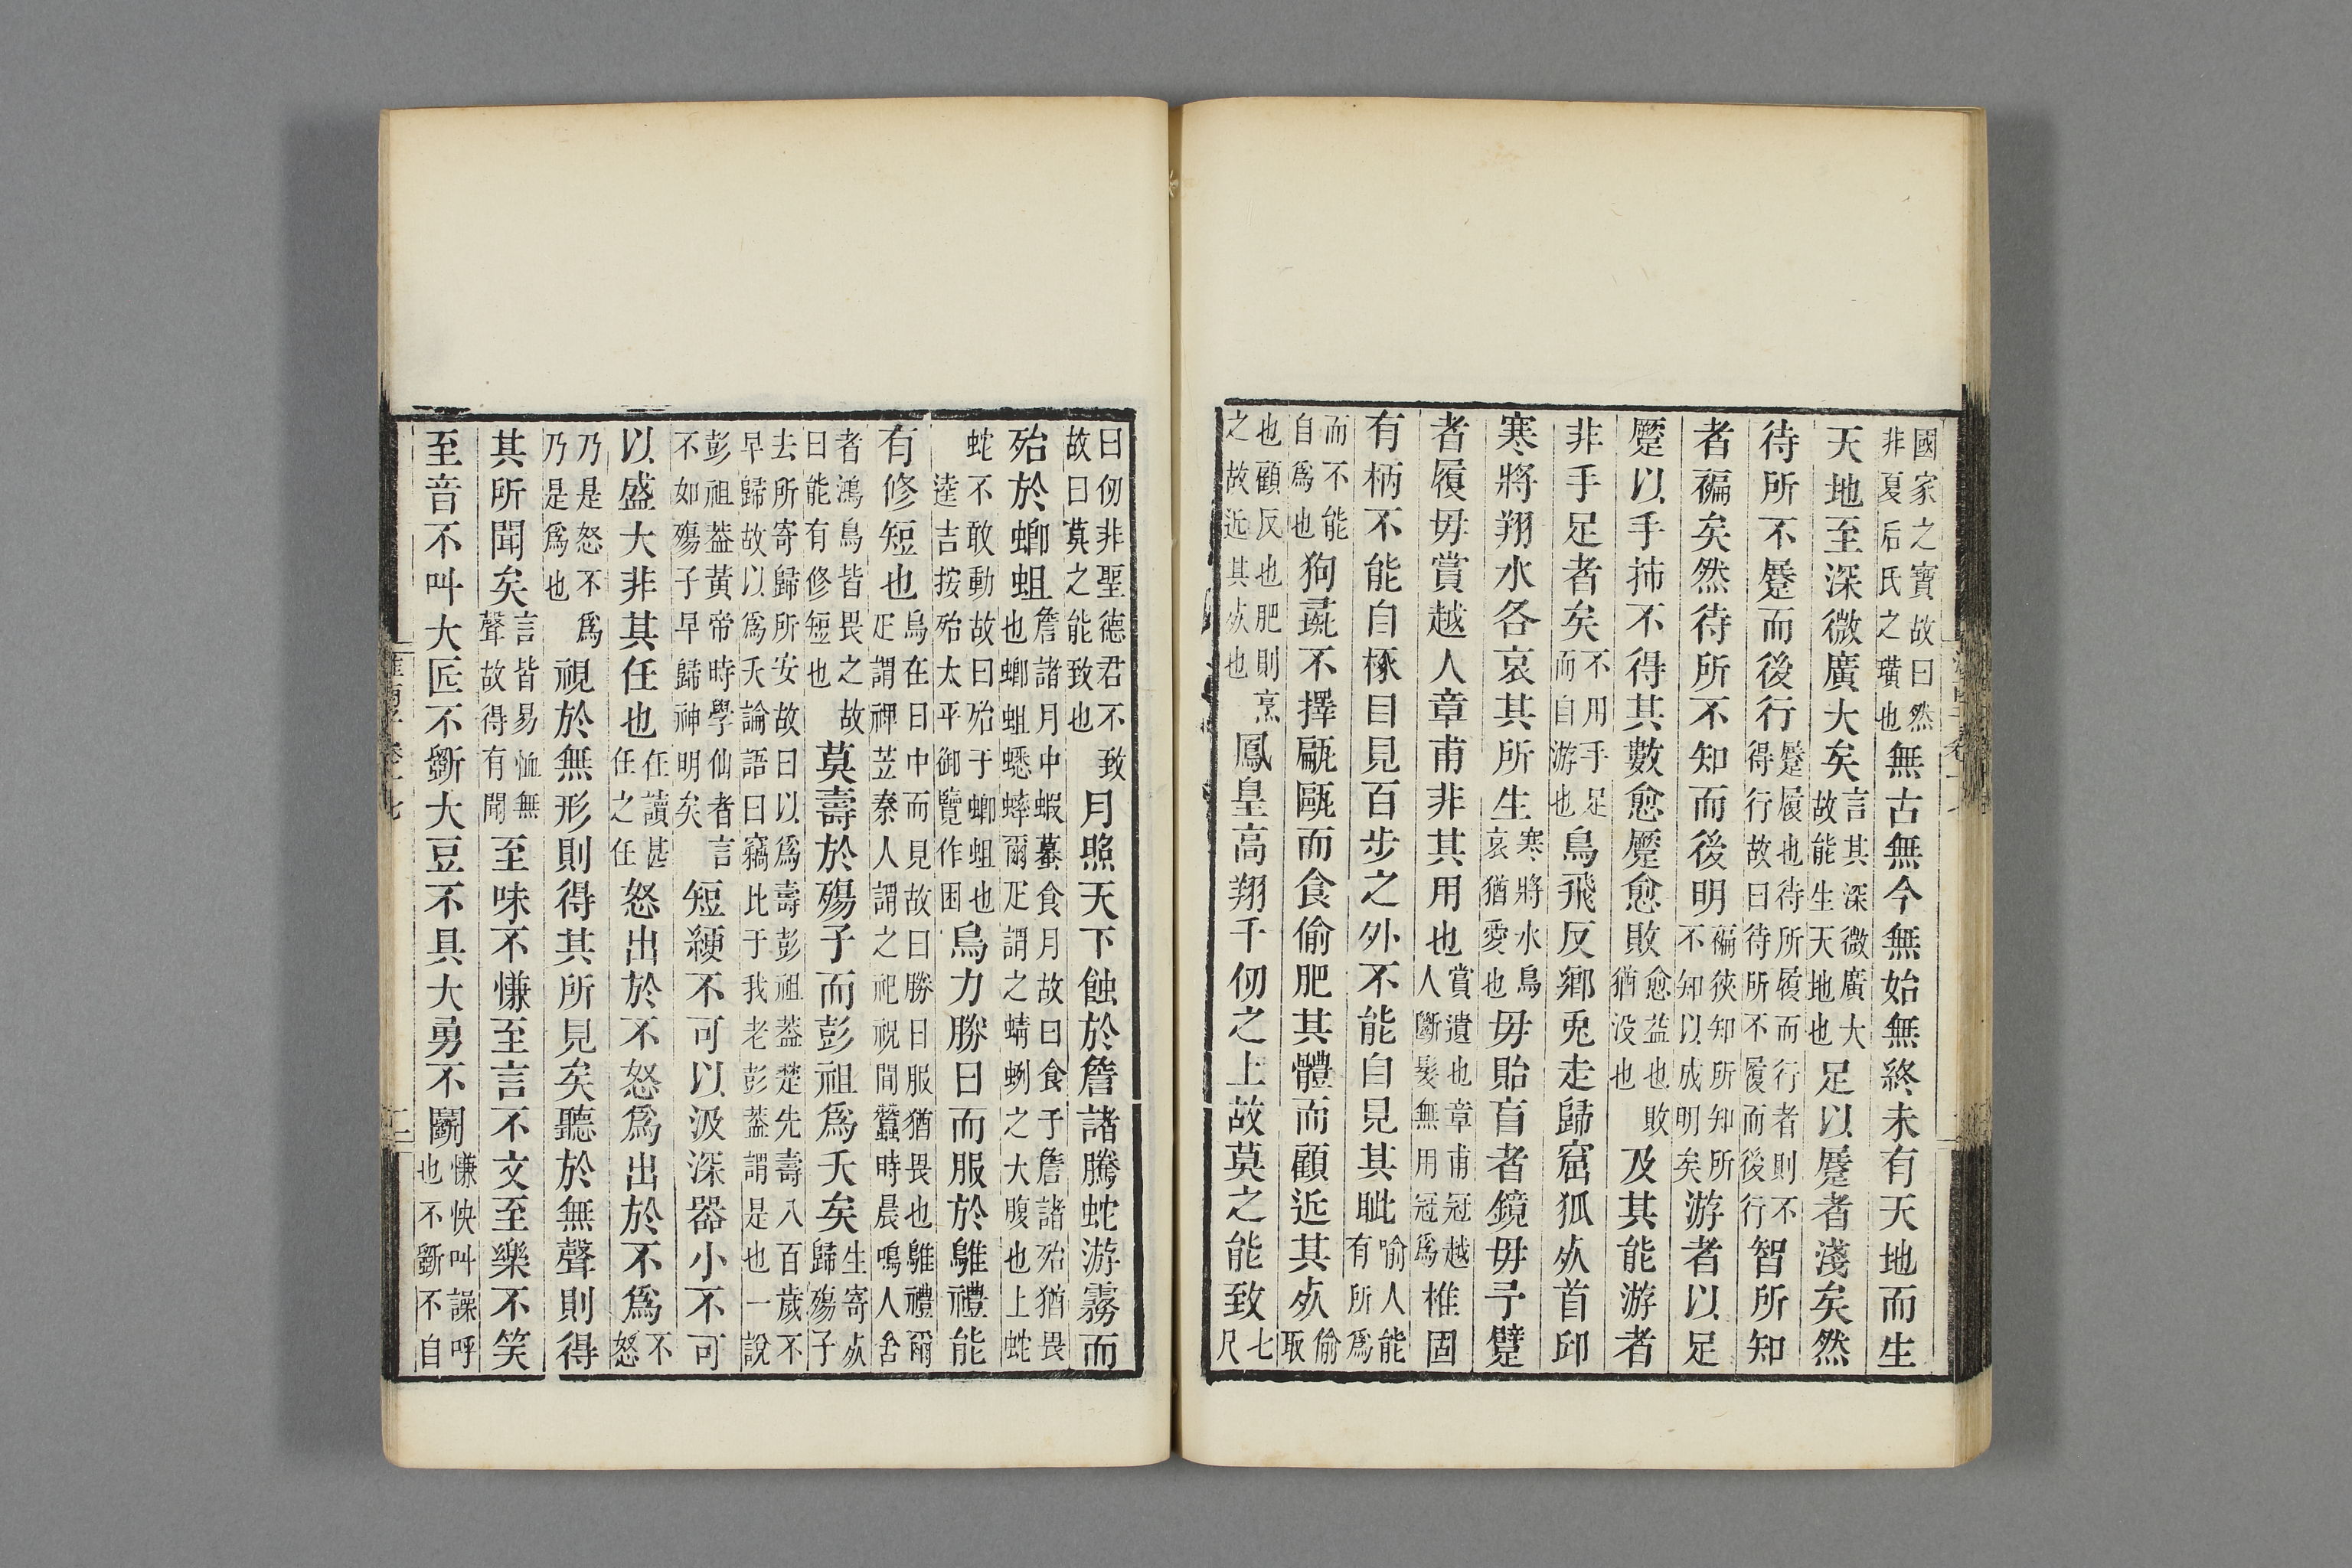 國家之寶故曰然非夏后氏之璜也無古無今無始無終未有天地而生
天地至深微廣大矣言其深微廣大故能生天地也足以蹷者淺矣然
待所不蹷而後行蹷履也待所履而行者則不得行故曰待所不履而後行智所知
者褊矣然待所不知而後明褊狹知所知所不知以成明矣游者以足
蹷以手抪不得其數愈蹷愈敗愈益也敗猶没也及其能游者
非手足者矣不用手足而自游也鳥飛反鄉兎走歸窟狐死首邱
寒將翔水各哀其所生寒將水鳥哀猶愛也毋貽盲者鏡毋予躄
者履毋賞越人章甫非其用也賞遺也章甫冠越人斷髮無用冠爲椎固
有柄不能自椓目見百步之外不能自見其眦喻人能有所爲
而不能自爲也狗彘不擇甂甌而食偷肥其體而顧近其死偷取
也顧反也肥則烹之故近其死也鳳皇高翔千仞之上故莫之能致七尺
曰仞非聖德君不致故曰莫之能致也月照天下蝕於詹諸騰蛇游霧而
殆於蝍蛆詹諸月中蝦蟇食月故曰食于詹諸殆猶畏也蝍蛆蟋蟀爾疋謂之蜻蛚之大腹也上蛇
蛇不敢動故曰殆于蝍蛆也逵吉按殆太平御覽作困烏力勝日而服於鵻禮能
有修短也烏在日中而見故曰勝日服猶畏也鵻禮爾疋謂裨苙秦人謂之祀祝間蠶時晨鳴人舍
者鴻鳥皆畏之故曰能有修短也莫壽於殤子而彭祖爲夭矣生寄死歸殤子
去所寄歸所安故曰以爲壽彭祖葢楚先壽八百歲不早歸故以爲夭論語曰竊比于我老彭葢謂是也一說
彭祖葢黃帝時學仙者言不如殤子早歸神明矣短綆不可以汲深器小不可
以盛大非其任也任讀甚任之任怒出於不怒爲出於不爲不怒
乃是怒不爲乃是爲也視於無形則得其所見矣聽於無聲則得
其所聞矣言皆易恤無聲故得有聞至味不慊至言不文至樂不笑
至音不叫大匠不斵大豆不具大勇不鬭慊快叫譟呼也不斵不自